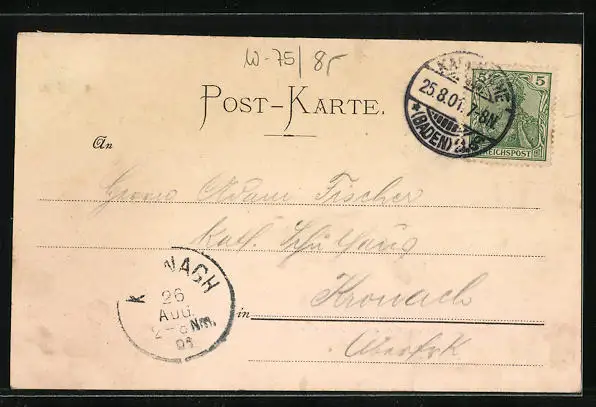 W-75/85
POST-KARTE.
KARLSRUHE
25.8.01. 7-8N.
*(BADEN) 2
5 5
REICHSPOST
An
Herrn Adam Fischer
Kath. Schulhaus
in Kronach
Oberfrk
KRONACH
26
Aug.
Nm.
01